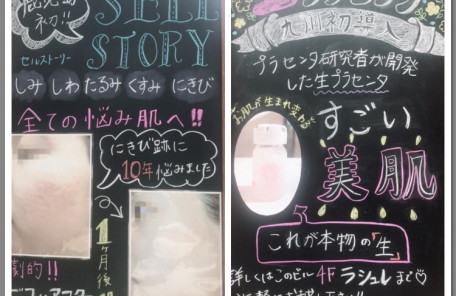 鹿児島
初!!
SELL
STORY
セルストーリー
しみ しわ たるみ くすみ にきび
全ての悩み肌へ!!
にきび跡に
10年悩みました
1ヶ月後
劇的!!
九州初導入
プラセンタ研究者が開発
した生プラセンタ
お肌が生まれ変わる
すごい
美肌
これが本物の「生」
詳しくはこのビル4F ラシュレまで♡